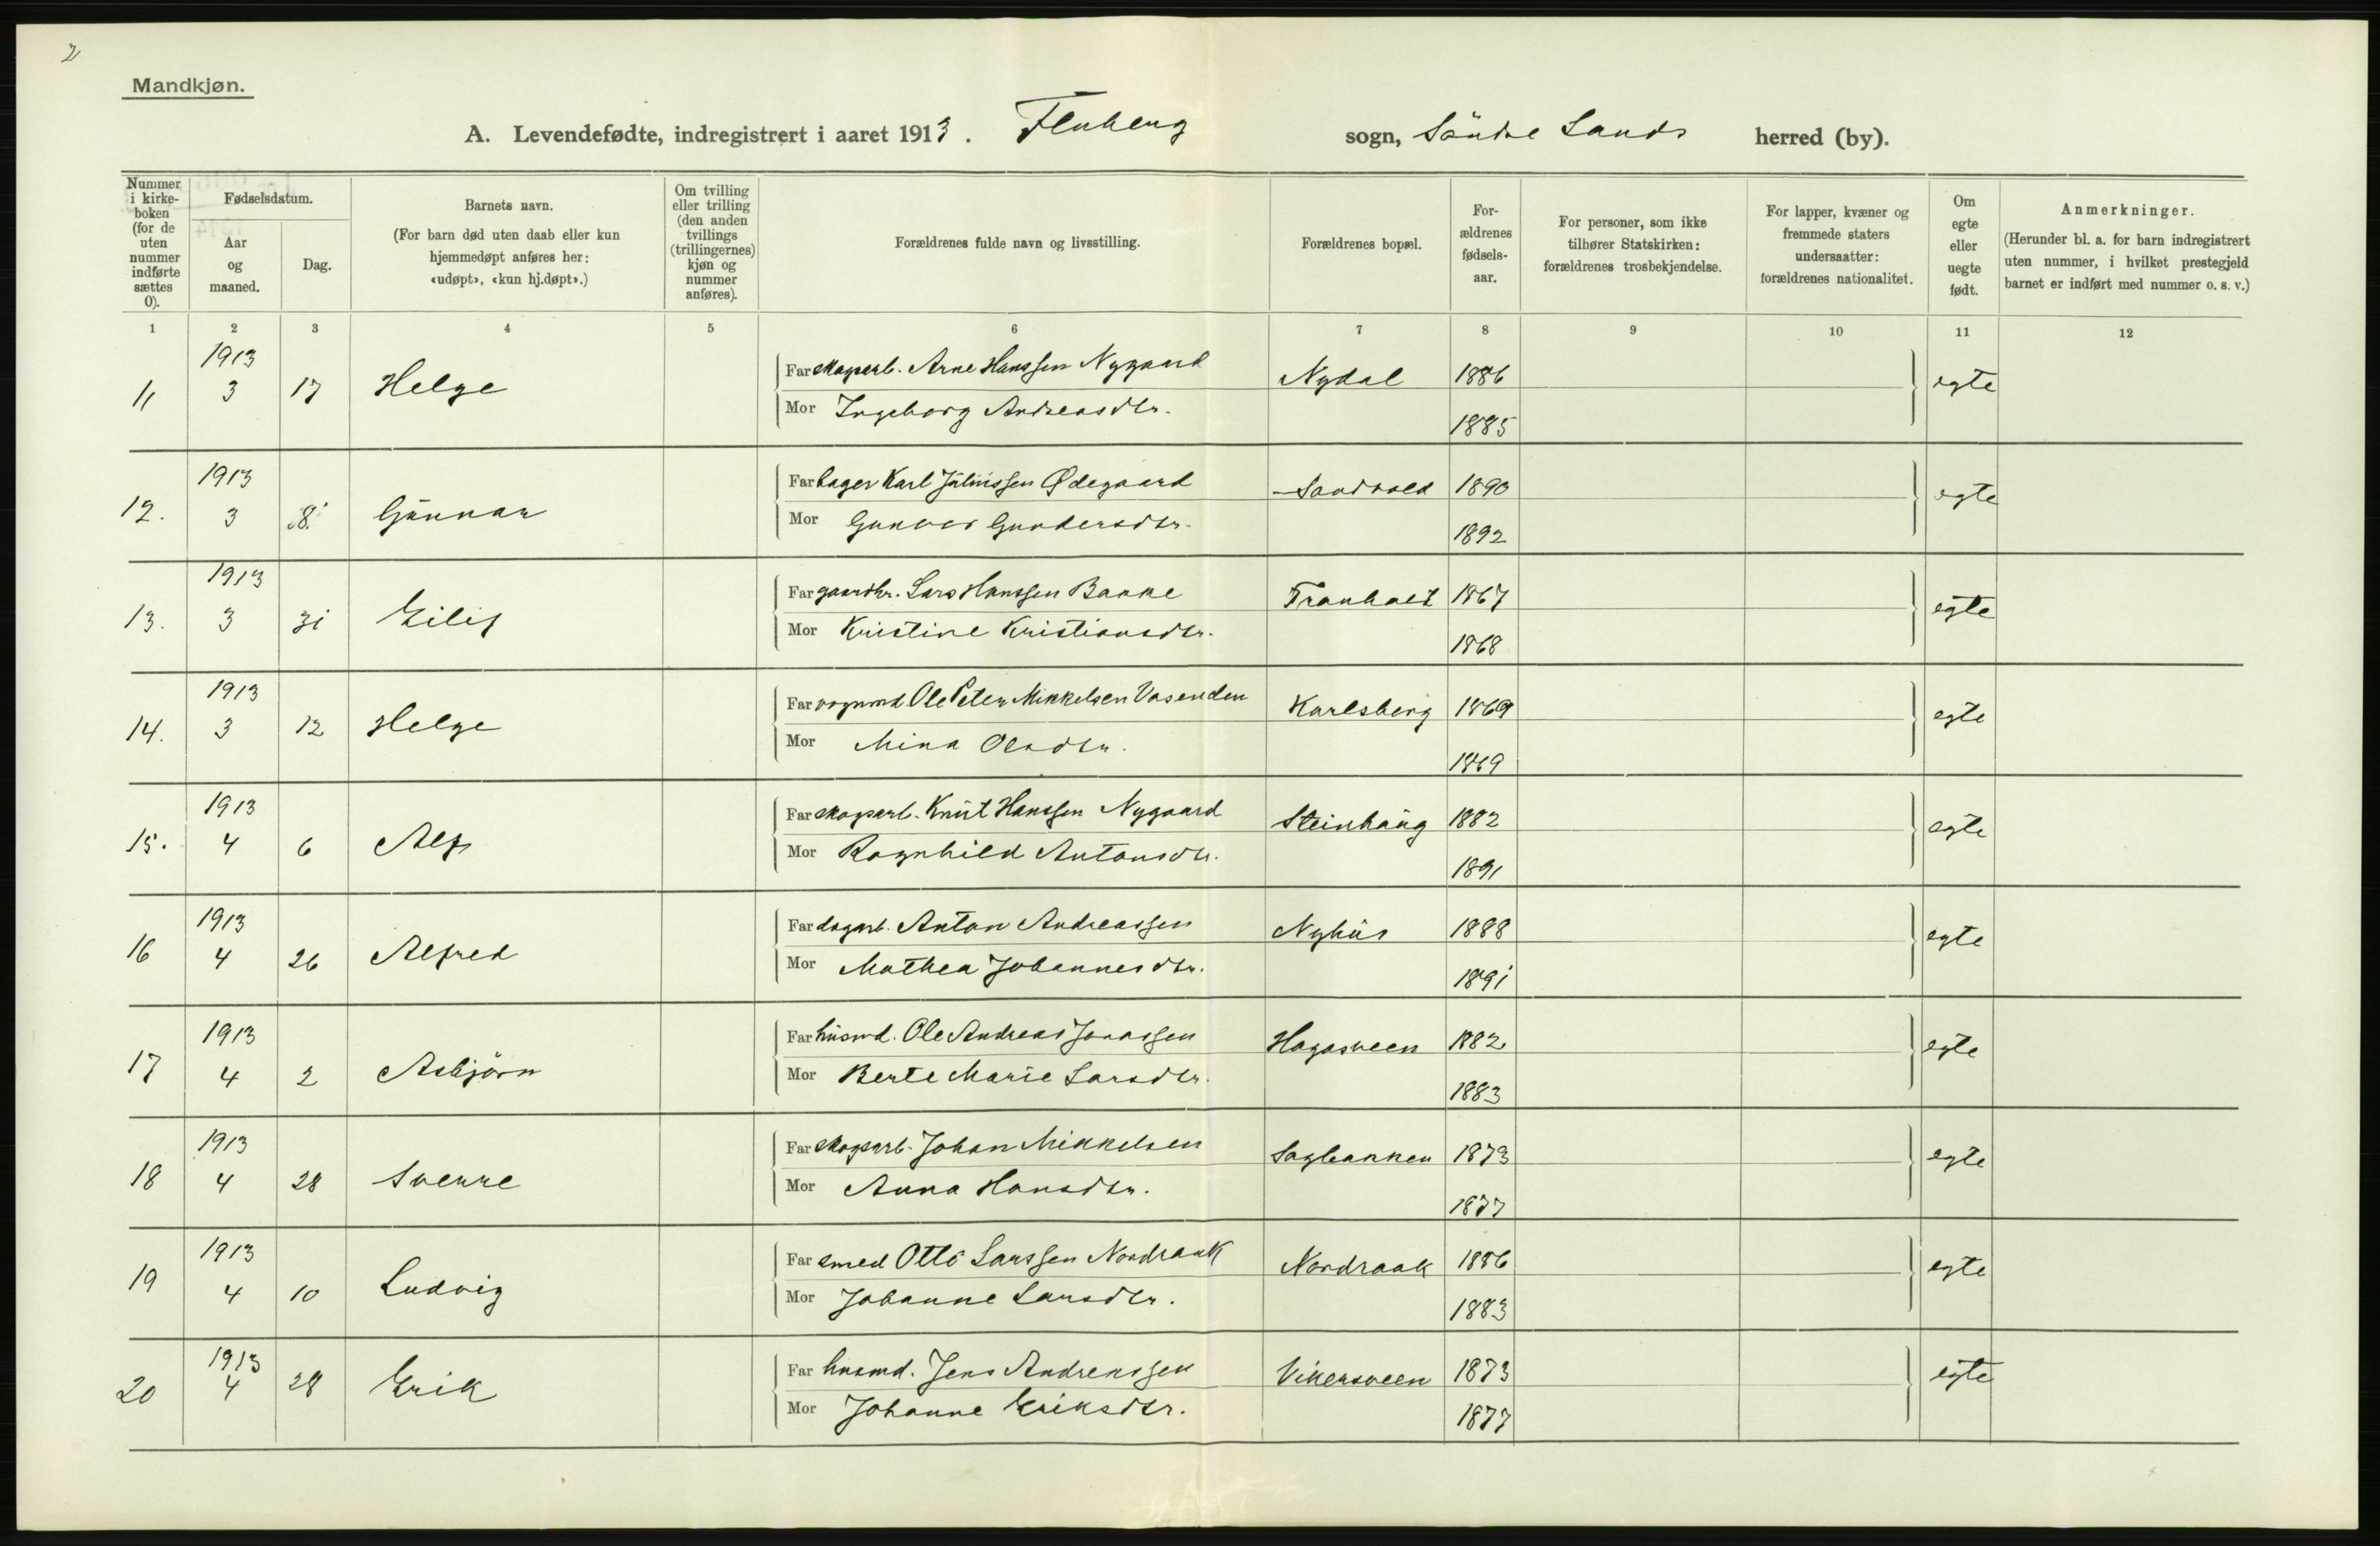 2
Mandkjøn.
A. Levendefødte, indregistrert i aaret 1913. Fluberg sogn, Söndre Lands herred (by).
Nummer i kirkeboken (for de uten nummer indførte sættes 0).
Fødselsdatum.
Aar og maaned.
Dag.
Barnets navn.
(For barn død uten daab eller kun hjemmedøpt anføres her: «udøpt», «kun hj.døpt».)
Om tvilling eller trilling (den anden tvillings (trillingernes) kjøn og nummer anføres).
Forældrenes fulde navn og livsstilling.
Forældrenes bopæl.
For-ældrenes fødsels-aar.
For personer, som ikke tilhører Statskirken: forældrenes trosbekjendelse.
For lapper, kvæner og fremmede staters undersaatter: forældrenes nationalitet.
Om egte eller uegte født.
Anmerkninger.
(Herunder bl. a. for barn indregistrert uten nummer, i hvilket prestegjeld barnet er indført med nummer o. s. v.)
1 2 3 4 5 6 7 8 9 10 11 12
11 1913 3 17 Helge Far skogarb. Arne Hanssen Nygaard Nydal 1886 egte
Mor Ingeborg Andreasdtr. 1885
12. 1913 3 8 Gŭnnar Far bager Karl Ødegaard Sandvold 1890 egte
Mor Gunvor Gundersdtr. 1892
13. 1913 3 31 Eilif Far gaardbr. Lars Hanssen Bakke Tranholt 1867 egte
Mor Kristine Kristiansdtr. 1868
14. 1913 3 12 Helge Far vognmd Ole Peter Mikkelsen Vasenden Karlsberg 1869 egte
Mor Mina Olsdtr. 1869
15. 1913 4 6 Alf Far skogarb. Knŭt Hanssen Nygaard Steinhaŭg 1882 egte
Mor Ragnhild Antonsdtr. 1891
16 1913 4 26 Alfred Far dagarb. Anton Andreassen Nyhŭs 1888 egte
Mor Mathea Johannesdtr. 1891
17 1913 4 2 Asbjörn Far hŭsmd. Ole Andreas Jonassen Hagasveen 1882 egte
Mor Berte Marie Larsdtr. 1883
18 1913 4 28 Sverre Far skogarb. Johan Mikkelsen Sagbakken 1873 egte
Mor Anna Hansdtr. 1877
19 1913 4 10 Ludvig Far smed Otto Larssen Nordraak Nordraak 1886 egte
Mor Johanne Larsdtr. 1883
20 1913 4 28 Erik Far husmd. Jens Andreassen Vikersveen 1873 egte
Mor Johanne Eriksdtr. 1877